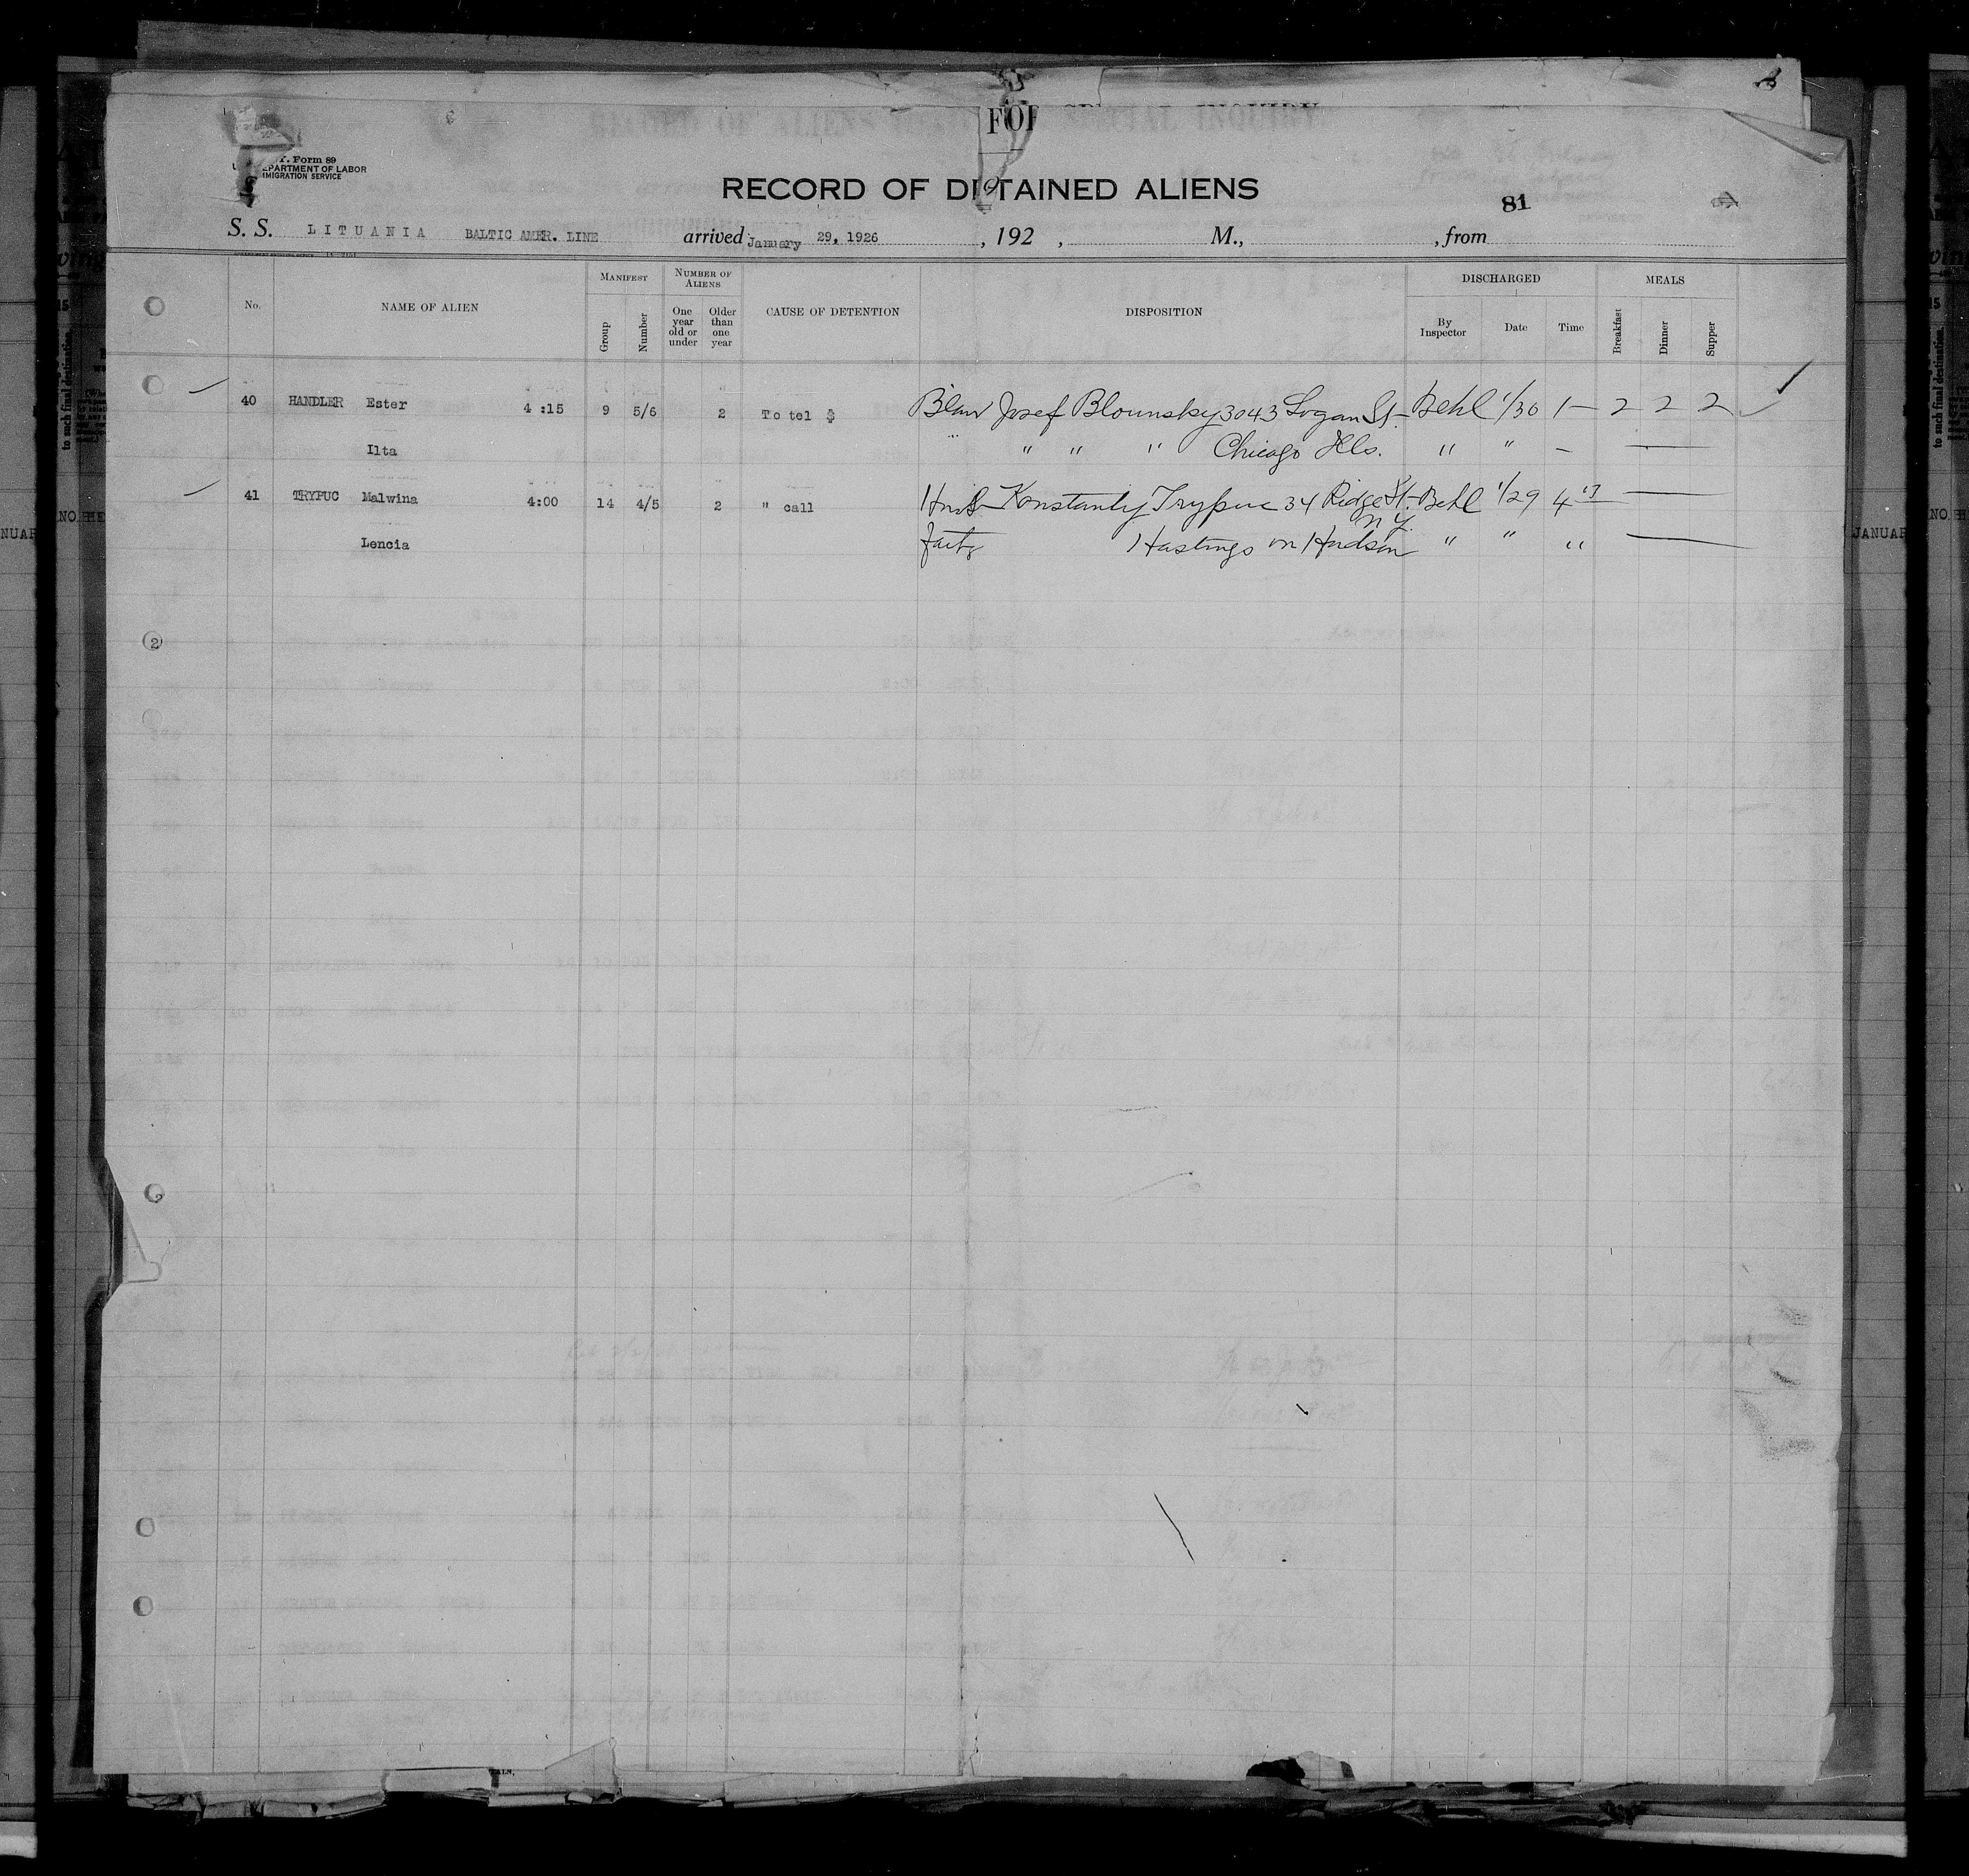 FOR SPECIAL INQUIRY
RECORD OF ALIENS
T. Form 89
EPARTMENT OF LABOR
MIGRATION SERVICE
RECORD OF DETAINED ALIENS
81
S. S. LITUANIA BALTIC AMER. LINE arrived January 29, 1926 , 192 , M., , from
No. NAME OF ALIEN MANIFEST NUMBER OF ALIENS CAUSE OF DETENTION DISPOSITION DISCHARGED MEALS
Group Number One year old or under Older than one year By Inspector Date Time Breakfast Dinner Supper
40 HANDLER Ester 4:15 9 5/6 2 To tel $ Josef Blounsky 3043 Logan St- Behl 1/30 1— 2 2 2
Ilta " " " Chicago Ills. " " —
41 TRYPUC Malwina 4:00 14 4/5 2 " call Husb Konstanty Trypuc 34 Ridge St.- Behl 1/29 4
N.Y.
Lencia Hastings on Hudson " " "